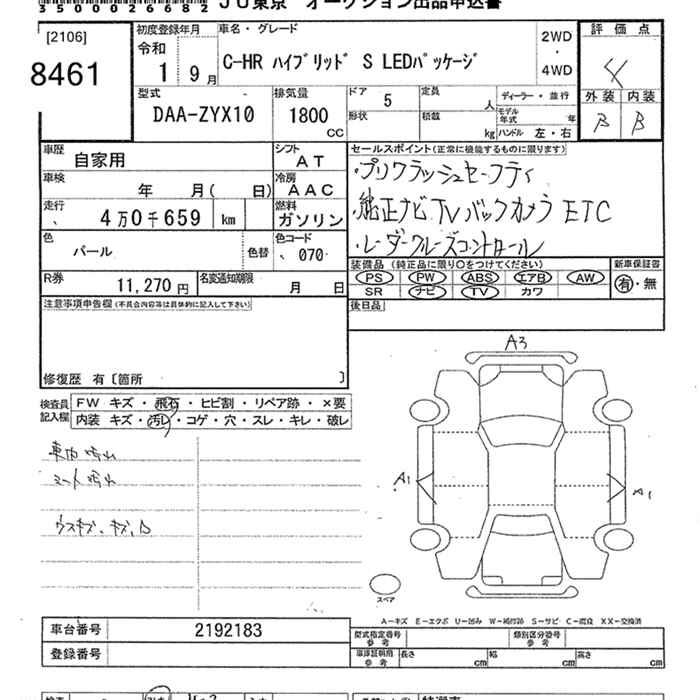 350026682 JU東京 オークション出品申込書
[2106]
8461
初度登録年月
令和
1 9月
車名・グレード
C-HR ハイブリッド S LEDパッケージ
2WD
・
4WD
評価点
4
外装 内装
B B
型式
DAA-ZYX10
排気量
1800
CC
ドア 5
形状
定員
人
積載
kg
ディーラー・並行
モデル年式
年
ハンドル 左・右
車歴
自家用
シフト
AT
車検
年 月( 日)
冷房
AAC
走行
4万0千659 km
燃料
ガソリン
色
パール
色替
色コード
070
R券
11,270円
名変通知期限
月 日
セールスポイント(正常に機能するものに限ります)
・プリクラッシュセーフティ
・純正ナビTVバックカメラ ETC
・レーダークルーズコントロール
装備品 (純正品に限り○をつけてください)
PS PW ABS エアB AW
SR ナビ TV カワ
新車保証書
有・無
後日品
注意事項申告欄(不具合内容等は具体的に記入して下さい)
修復歴 有〔箇所 〕
検査員
記入欄
FW キズ・飛石・ヒビ割・リペア跡・×要
内装 キズ・汚レ・コゲ・穴・スレ・キレ・破レ
車内汚れ
シート汚れ
ウスキズ、キズ、凸
A3
A1
A1
スペア
A-キズ E-エクボ U-凹み W-補修跡 S-サビ C-腐食 XX-交換済
車台番号
2192183
登録番号
型式指定番号
参考
類別区分番号
参考
車庫証明用
参考
長さ
cm
幅
cm
高さ
cm